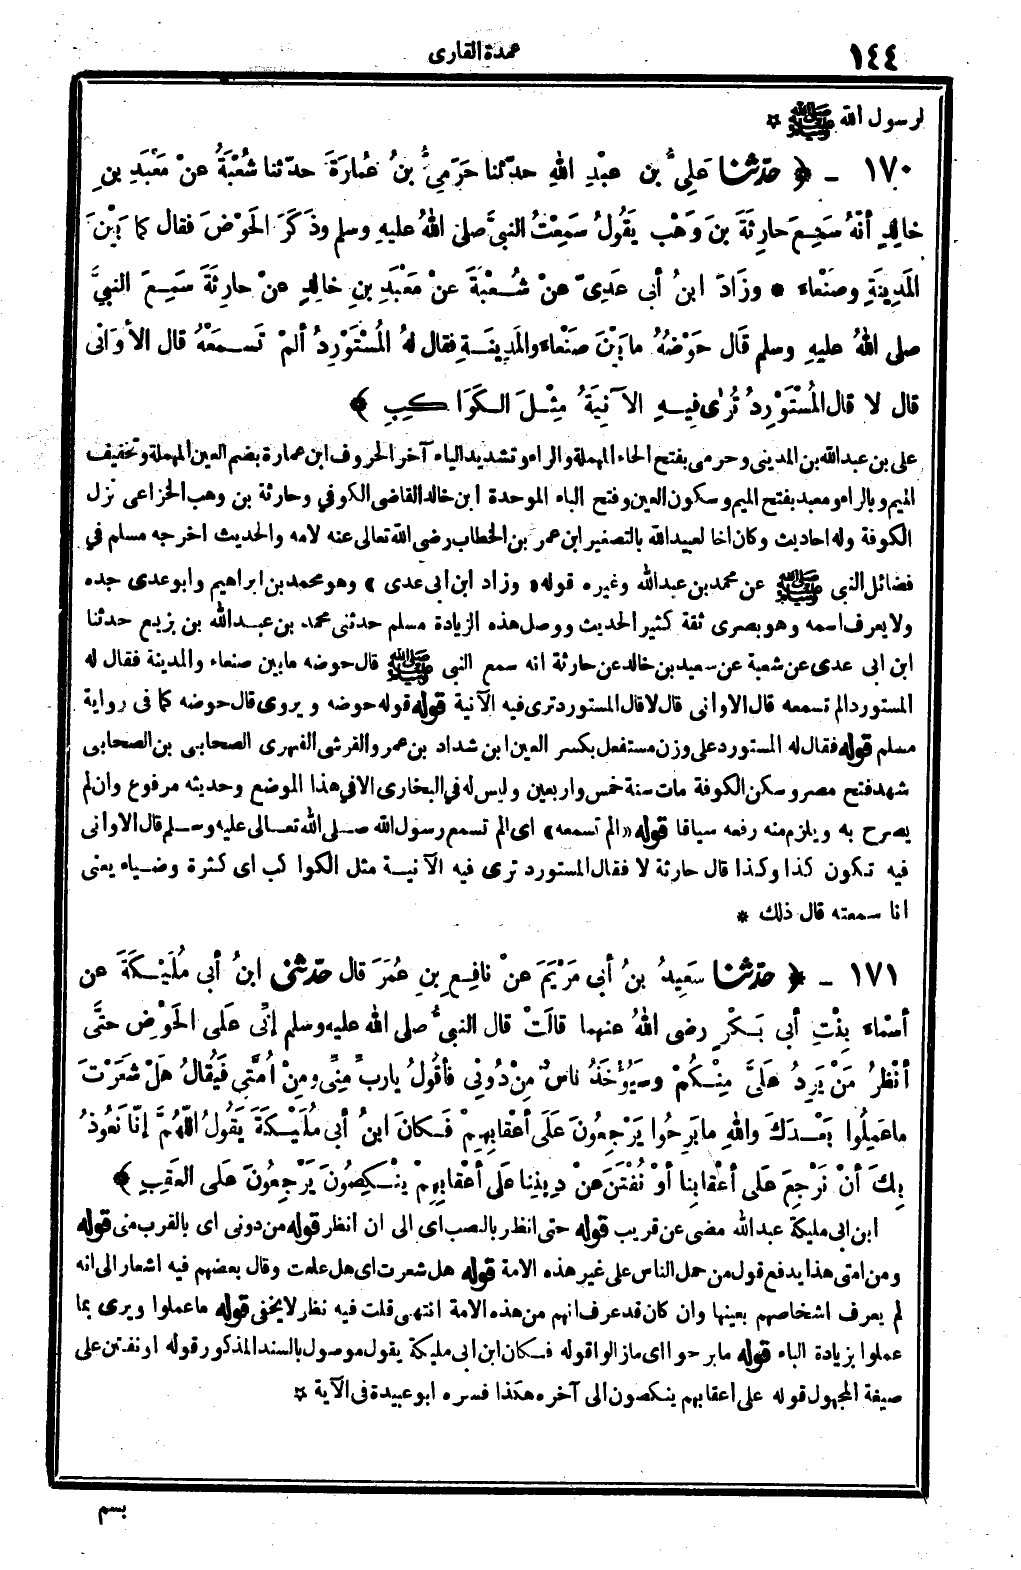 ١٤٤
عمدة القارى
لرسول الله ﷺ ☆
١٧٠ - ﴿ حدّثنا عَلِيُّ بن عبْدِ اللهِ حدّثنا حَرَمِيُّ بنُ عُمارَةَ حدّثنا شُعْبَةُ عنْ مَعْبَدِ بنِ
خالِدٍ أنَّهُ سَمِعَ حارِثَةَ بنَ وَهْب يَقُولُ سَمِعْتُ النبيَّ صلى اللهُ عليهِ وسلم وذَكَرَ الحَوْضَ فقال كما بَيْنَ
المَدِينَةِ وصَنْعاء * وزَادَ ابنُ أبى عَدِىّ عنْ شُعْبَةَ عنْ مَعْبَدِ بنِ خالِدٍ عنْ حارِثَةَ سَمِعَ النبيَّ
صلى اللهُ عليهِ وسلم قَال حَوْضُهُ ما بَيْنَ صَنْعاء والمَدِينَةِ فقال لهُ المُسْتَوْرِدُ ألمْ تَسْمَعْهُ قال الأوَانى
قال لا قال المُسْتَوْرِدُ تُرٰى فِيهِ الآنِيَةُ مِثْلَ الكَوَاكِبِ ﴾
على بن عبدالله بن المدينى وحرمى بفتح الحاء المهملة والراء وتشديد الياء آخر الحروف ابن عمارة بضم العين المهملة وتخفيف
الميم وبالراء ومعبد بفتح الميم وسكون العين وفتح الباء الموحدة ابن خالد القاضى الكوفي وحارثة بن وهب الخزاعى نزل
الكوفة وله احاديث وكان اخا لعبيدالله بالتصغير ابن عمر بن الخطاب رضى الله تعالى عنه لامه والحديث اخرجه مسلم في
فضائل النبى ﷺ عن محمد بن عبدالله وغيره قوله « وزاد ابن ابى عدى » وهو محمد بن ابراهيم وابو عدى جده
ولا يعرف اسمه وهو بصرى ثقة كثير الحديث ووصل هذه الزيادة مسلم حدثنى محمد بن عبدالله بن بزيع حدثنا
ابن ابى عدى عن شعبة عن سعيد بن خالد عن حارثة انه سمع النبى ﷺ قال حوضه ما بين صنعاء والمدينة فقال له
المستورد الم تسمعه قال الاوانى قال لا قال المستورد ترى فيه الآنية قوله قوله حوضه ويروى قال حوضه كما فى رواية
مسلم قوله فقال له المستورد على وزن مستفعل بكسر العين ابن شداد بن عمرو القرشى الفهرى الصحابى بن الصحابى
شهد فتح مصر وسكن الكوفة مات سنة خمس واربعين وليس له في البخارى الا في هذا الموضع وحديثه مرفوع وان لم
يصرح به ويلزم منه رفعه سياقا قوله «الم تسمعه» اى الم تسمع رسول الله صلى الله تعالى عليه وسلم قال الاوانى
فيه تكون كذا وكذا قال حارثة لا فقال المستورد ترى فيه الآنية مثل الكواكب اى كثرة وضياء يعنى
انا سمعته قال ذلك *
١٧١ - ﴿ حدّثنا سَعِيدُ بنُ أبى مَرْيَمَ عنْ نافِعِ بنِ عُمَرَ قال حدّثنى ابنُ أبى مُلَيْكَةَ عن
أسْماء بِنْتِ أبى بَكْرٍ رضى اللهُ عنهما قالَتْ قال النبيُّ صلى الله عليه وسلم إنِّى عَلى الحَوْضِ حتَّى
أنْظُرُ مَنْ يَرِدُ عَلَىَّ مِنْكُمْ وسَيُؤْخَذُ ناسٌ مِنْ دُونِى فأقُولُ يارب مِنِّى ومِنْ أُمَّتِى فَيُقالُ هَلْ شَعَرْتَ
ما عَمِلُوا بَعْدَكَ واللهِ ما بَرِحُوا يَرْجِعُونَ عَلَى أعْقابِهِمْ فَكانَ ابنُ أبى مُلَيْكَةَ يَقُولُ اللَّهُمَّ إنَّا نَعُوذُ
بِكَ أنْ نَرْجِعَ عَلى أعْقابِنا أوْ نُفْتَنَ عنْ دِينِنا عَلى أعْقابِهِمْ يَنْكِصُونَ يَرْجِعُونَ عَلى العَقِبِ ﴾
ابن ابى مليكة عبدالله مضى عن قريب قوله حتى انظر بالنصب اى الى ان انظر قوله من دونى اى بالقرب منى قوله
ومن امتى هذا يدفع قول من حمل الناس على غير هذه الامة قوله هل شعرت اى هل علمت وقال بعضهم فيه اشعار الى انه
لم يعرف اشخاصهم بعينها وان كان قد عرف انهم من هذه الامة انتهى قلت فيه نظر لا يخفى قوله ما عملوا ويرى بما
عملوا بزيادة الباء قوله ما برحوا اى ما زالوا قوله فكان ابن ابى مليكة يقول موصول بالسند المذكور قوله او نفتن على
صيغة المجهول قوله على اعقابهم ينكصون الى آخره هكذا فسره ابو عبيدة فى الآية ☆
بسم